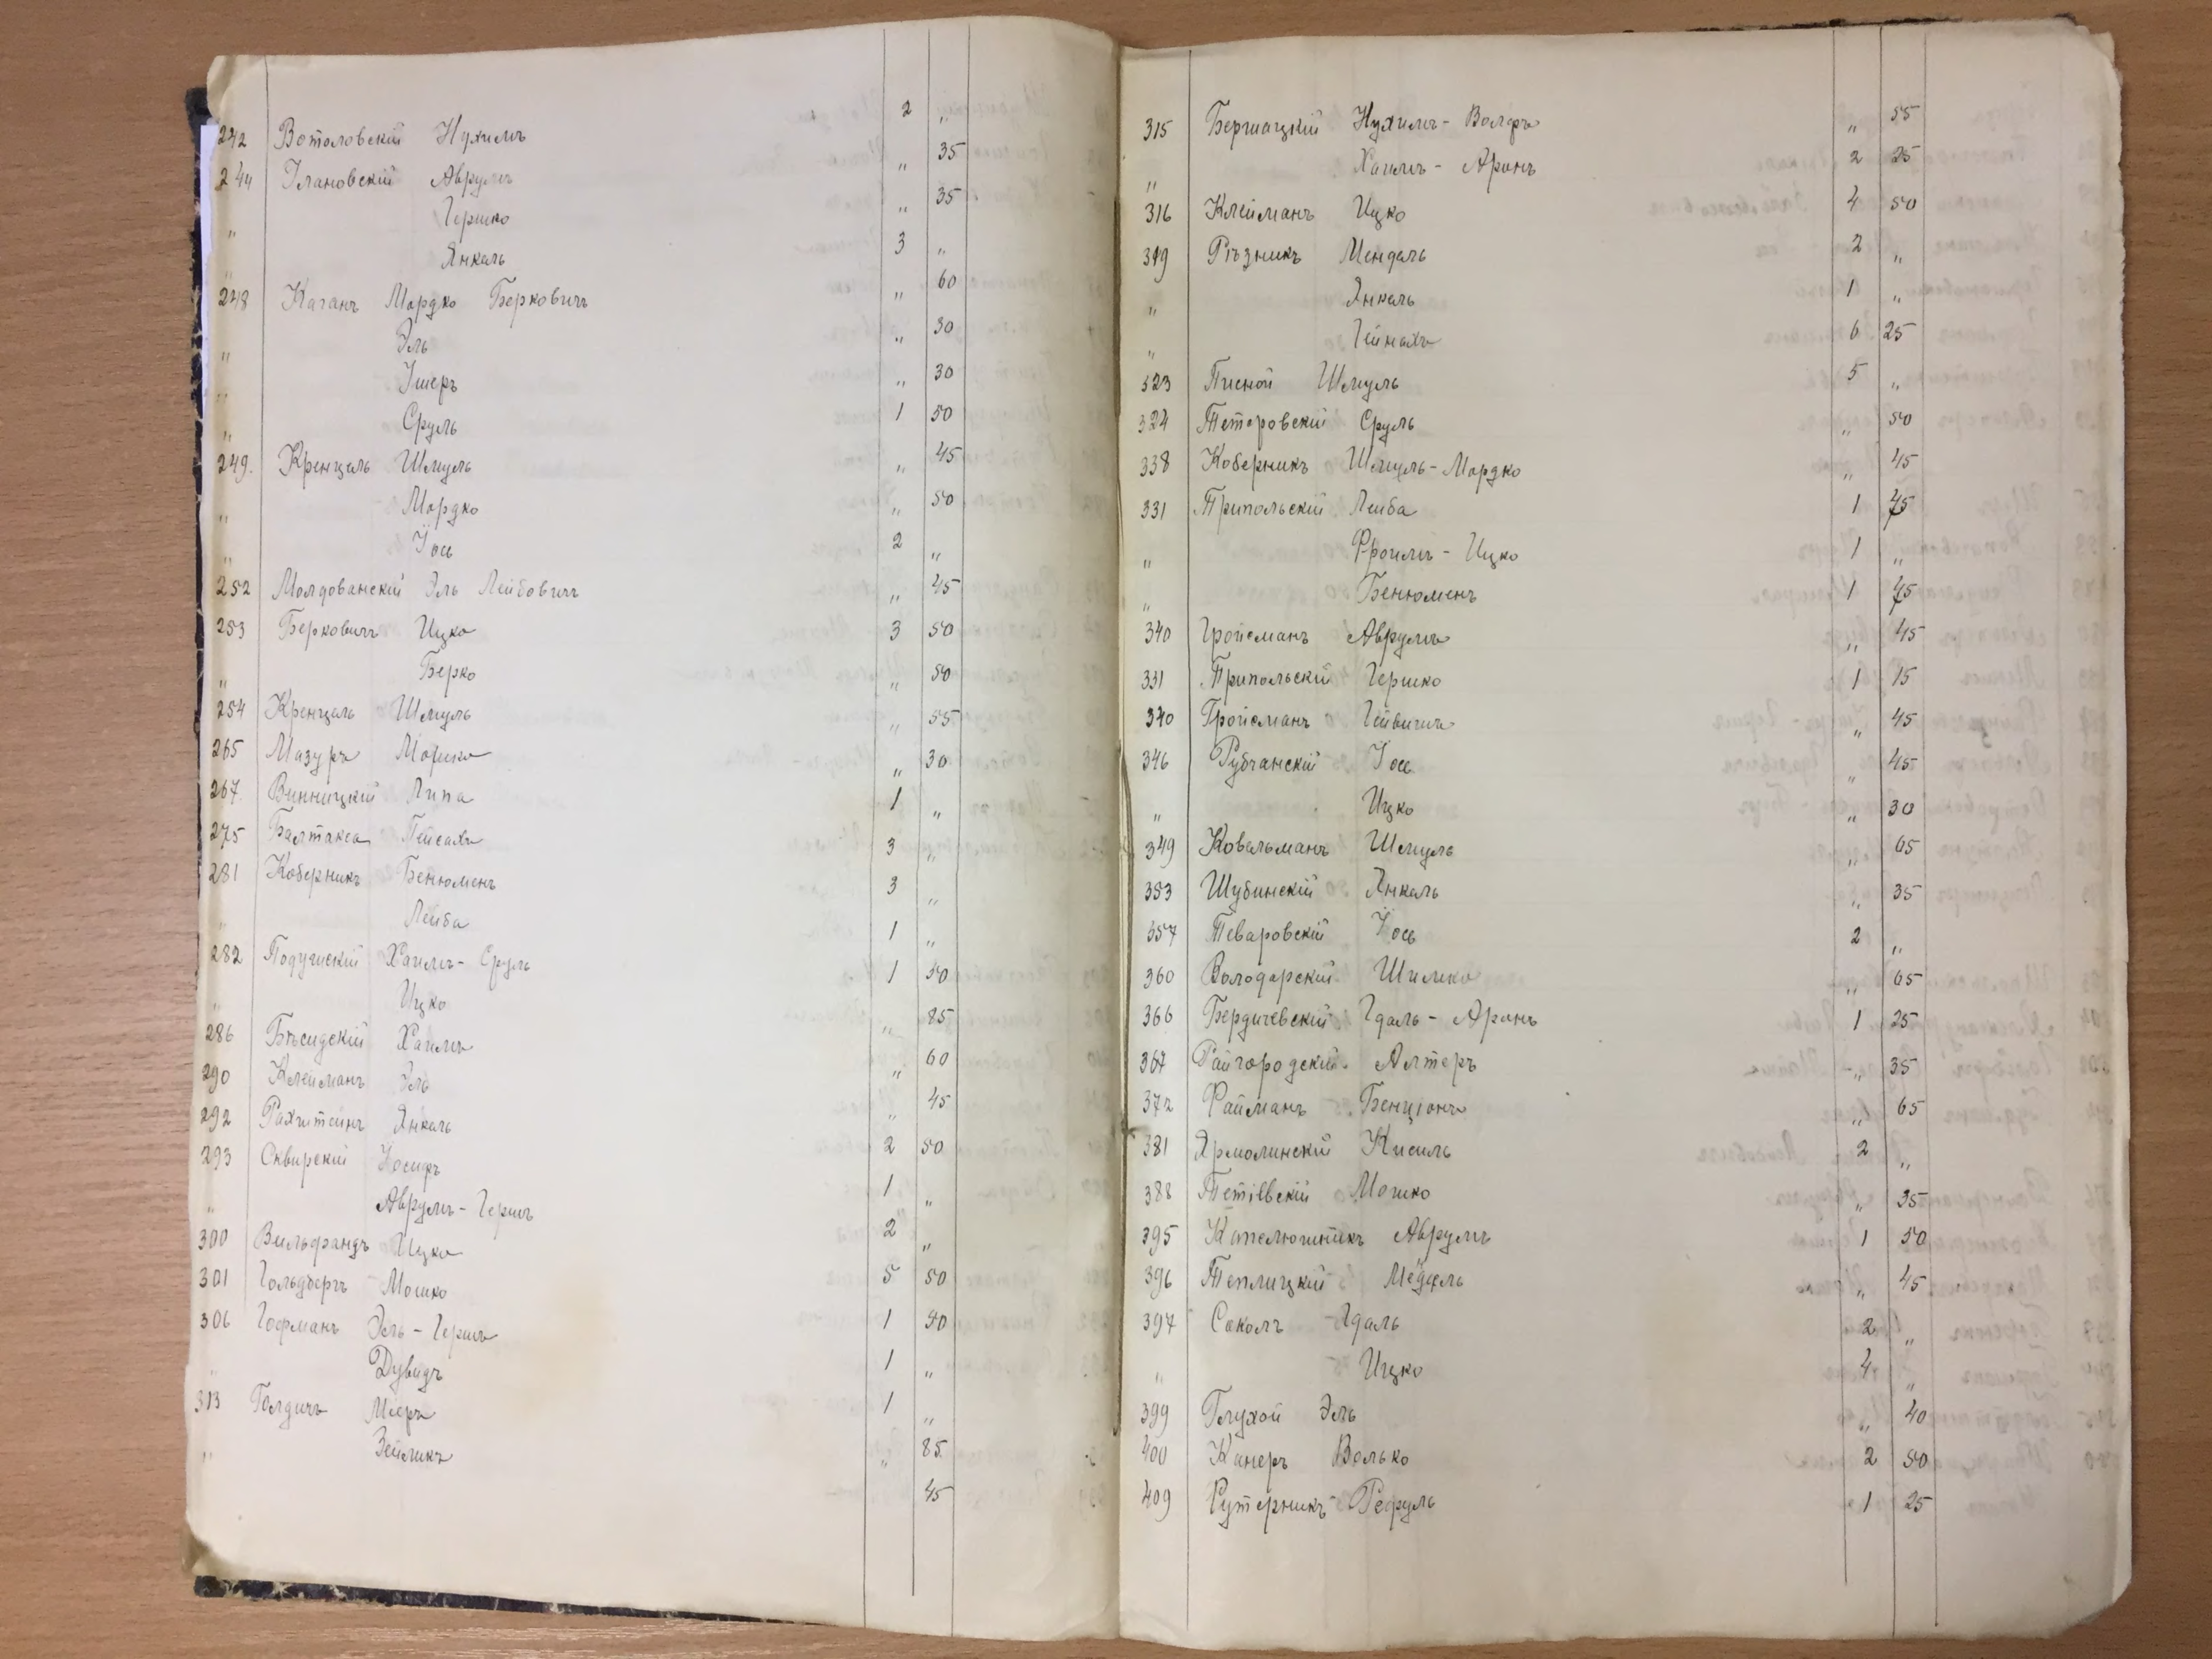 242 Вотоловскій Нухимъ 2 "
244 Улановскій Аврумъ " 35
" Гершко " 35
" Янкель 3 "
248 Каганъ Мордко Берковичъ " 60
" Эль " 30
" Ушеръ " 30
" Сруль 1 50
249. Кренцель Шмуль " 45
" Мордко " 50
" Іось 2 "
252 Молдованскій Эль Лейбовичъ " 45
253 Берковичъ Ицко 3 50
" Берко " 50
254 Кренцель Шмуль " 55
265 Мазуръ Мошко " 30
267 Винницкій Липа 1 "
275 Балтакса Пейсахъ 3 "
281 Коберникъ Бенюменъ 3 "
" Лейба 1 "
282 Хаимъ-Сруль 1 50
" Ицко " 85
286 Бѣсидскій Хаимъ " 60
290 Клейманъ Эль " 45
292 Рахштейнъ Янкель 2 50
293 Сквирскій Іосифъ 1 "
" Аврумъ-Гершъ 2 "
300 Вильфандъ Ицко 5 50
301 Гольдбергъ Мошко 1 50
306 Гофманъ Эль-Гершъ 1 "
" Дувидъ 1 "
313 Мееръ " 85
" Зейликъ 45
315 Бершацкій Нухимъ-Волфъ " 55
" Хаимъ-Аронъ 2 25
316 Клейманъ Ицко 4 50
319 Рѣзникъ Мендель 2 "
" Янкель 1 "
" Гейнахъ 6 25
323 Писной Шмуль 5 "
324 Тетеровскій Сруль " 50
338 Коберникъ Шмуль-Мордко " 45
331 Трипольскій Лейба 1 75
" Фроимъ-Ицко 1 "
" Бенюменъ 1 75
340 Гройсманъ Аврумъ " 45
331 Трипольскій Гершко 1 15
340 Гройсманъ Гейвишъ " 45
346 Рубчанскій Іось " 45
" Ицко " 30
349 Ковальманъ Шмуль " 65
353 Шубинскій Янкель " 35
357 Теваровскій Іось 2 "
360 Володарскій Шимко " 65
366 Бердичевскій Гдаль-Аронъ 1 25
367 Райгородскій Алтеръ " 35
372 Файманъ Бенціонъ " 65
381 Ярмолинскій Кисиль 2 "
388 Тетіевскій Мошко " 35
395 Капелюшникъ Аврумъ 1 50
396 Теплицкій " 45
397 Соколъ Гдаль 2 "
" Ицко 4 "
399 Глухой Эль " 40
400 Канеръ Волько 2 50
409 Рефуль 1 25